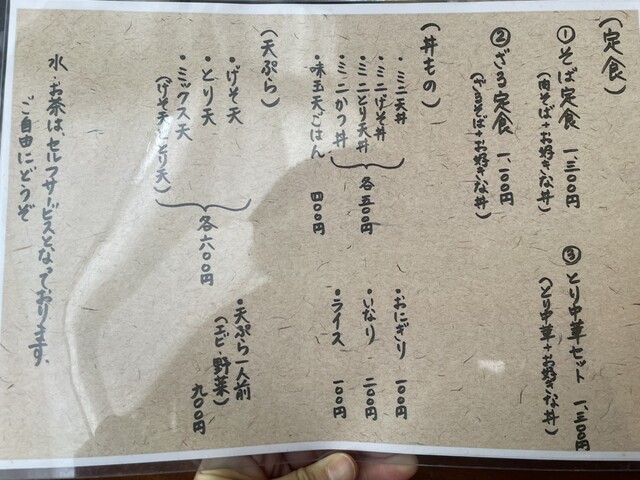 (定食)
①そば定食 一、三〇〇円
(肉そば+お好きな丼)
②ざる定食 一、一〇〇円
(ざるそば+お好きな丼)
③とり中華セット 一、三〇〇円
(とり中華+お好きな丼)
(丼もの)
・ミニ天丼
・ミニげそ丼
・ミニとり天丼
・ミニかつ丼
各五〇〇円
・味玉天ごはん 四〇〇円
・おにぎり 一〇〇円
・いなり 二〇〇円
・ライス 一〇〇円
(天ぷら)
・げそ天
・とり天
・ミックス天
(げそ天+とり天)
各六〇〇円
・天ぷら一人前
(エビ・野菜)
九〇〇円
水・お茶は、セルフサービスとなっております。
ご自由にどうぞ